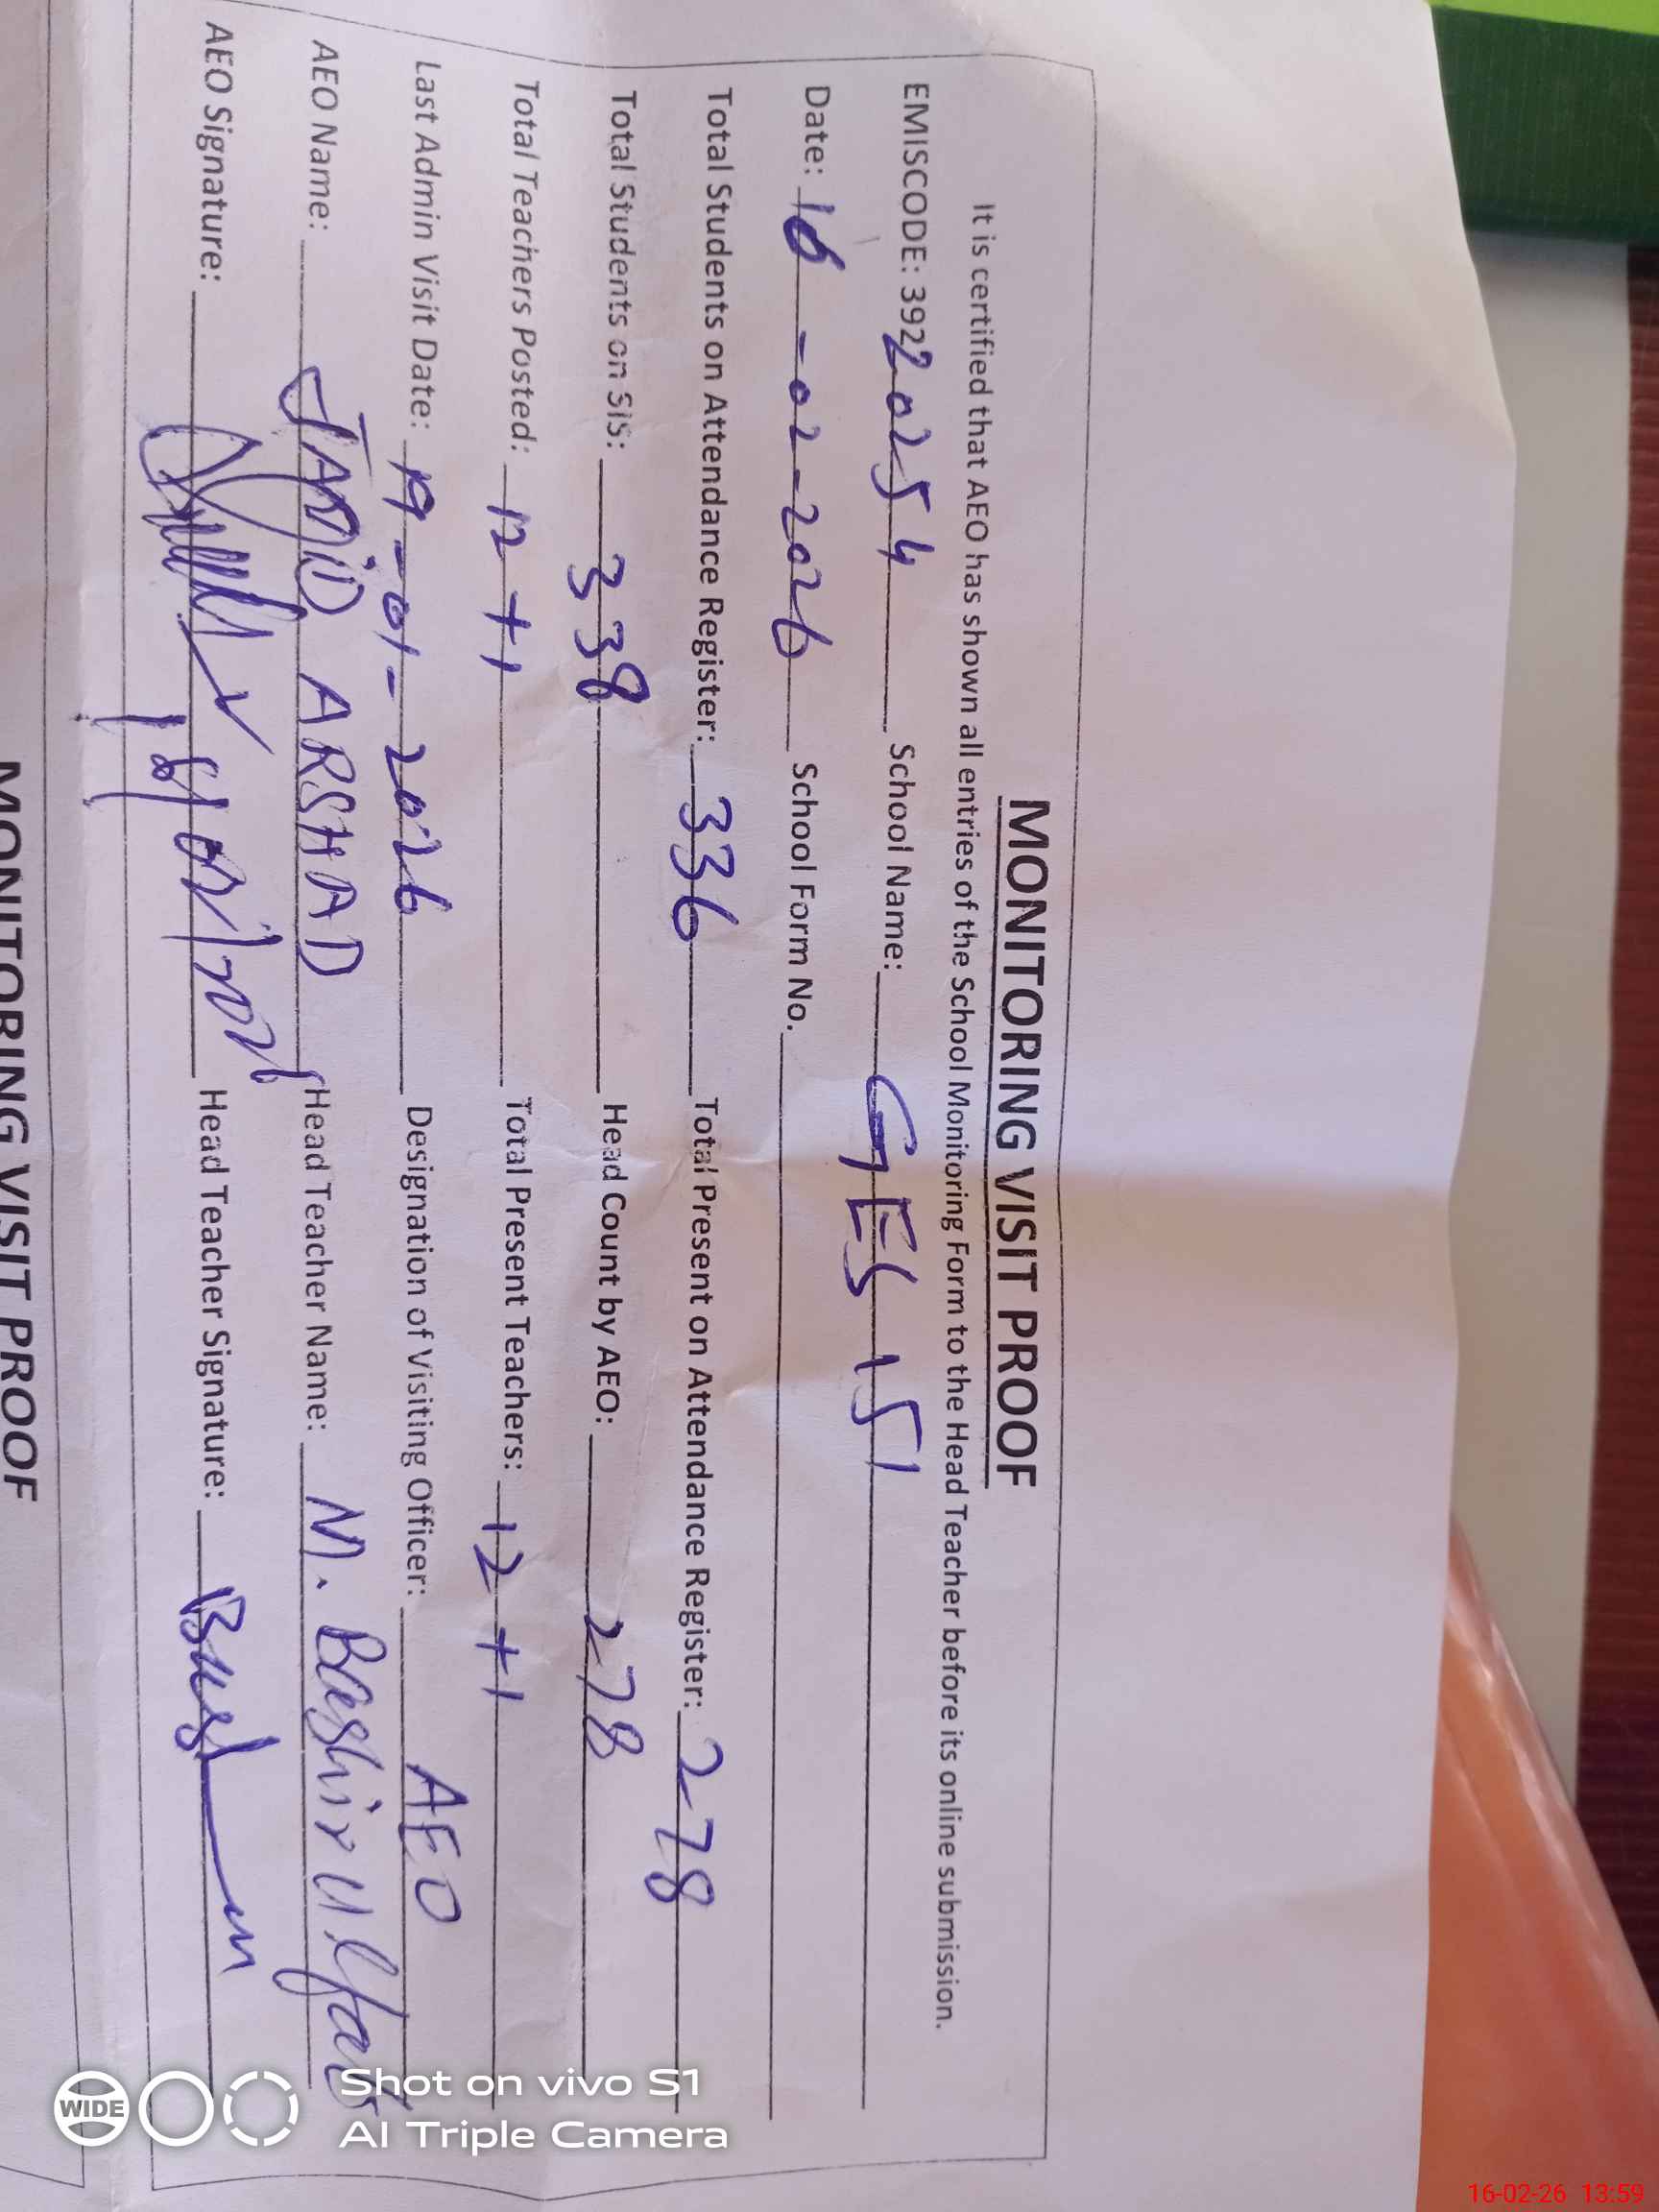 MONITORING VISIT PROOF
It is certified that AEO has shown all entries of the School Monitoring Form to the Head Teacher before its online submission.
EMISCODE: 39220254 School Name: GES 151
Date: 16-02-2026 School Form No.
Total Students on Attendance Register: 336 Total Present on Attendance Register: 278
Total Students on SIS: 338 Head Count by AEO: 278
Total Teachers Posted: 12+1 Total Present Teachers: 12+1
Last Admin Visit Date: 19-01-2026 Designation of Visiting Officer: AEO
AEO Name: ARSHAD Head Teacher Name: M. Bashir
AEO Signature: Head Teacher Signature:
MONITORING VISIT PROOF
WIDE
Shot on vivo S1
AI Triple Camera
16-02-26 13:59